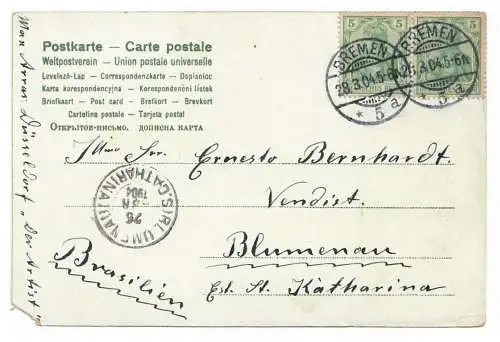 Postkarte — Carte postale
Weltpostverein — Union postale universelle
Levelező-Lap — Correspondenzkarte — Dopisnice
Karta korespondencyjna — Korespondenční lístek
Briefkaart — Post card — Brefkort — Brevkort
Cartolina postale — Tarjeta postal
Открытое-письмо, дописна карта
5
5
BREMEN
29.3.04.5-6N.
* 5 a
BREMEN
29.3.04.5-6N.
* 5 a
Illmo Snr. Ernesto Bernhardt.
Vendist.
Blumenau
Est. St. Katharina
Brasilien
BLUMENAU (S. CATHARINA)
26
1904
Düsseldorf „Der Artist"